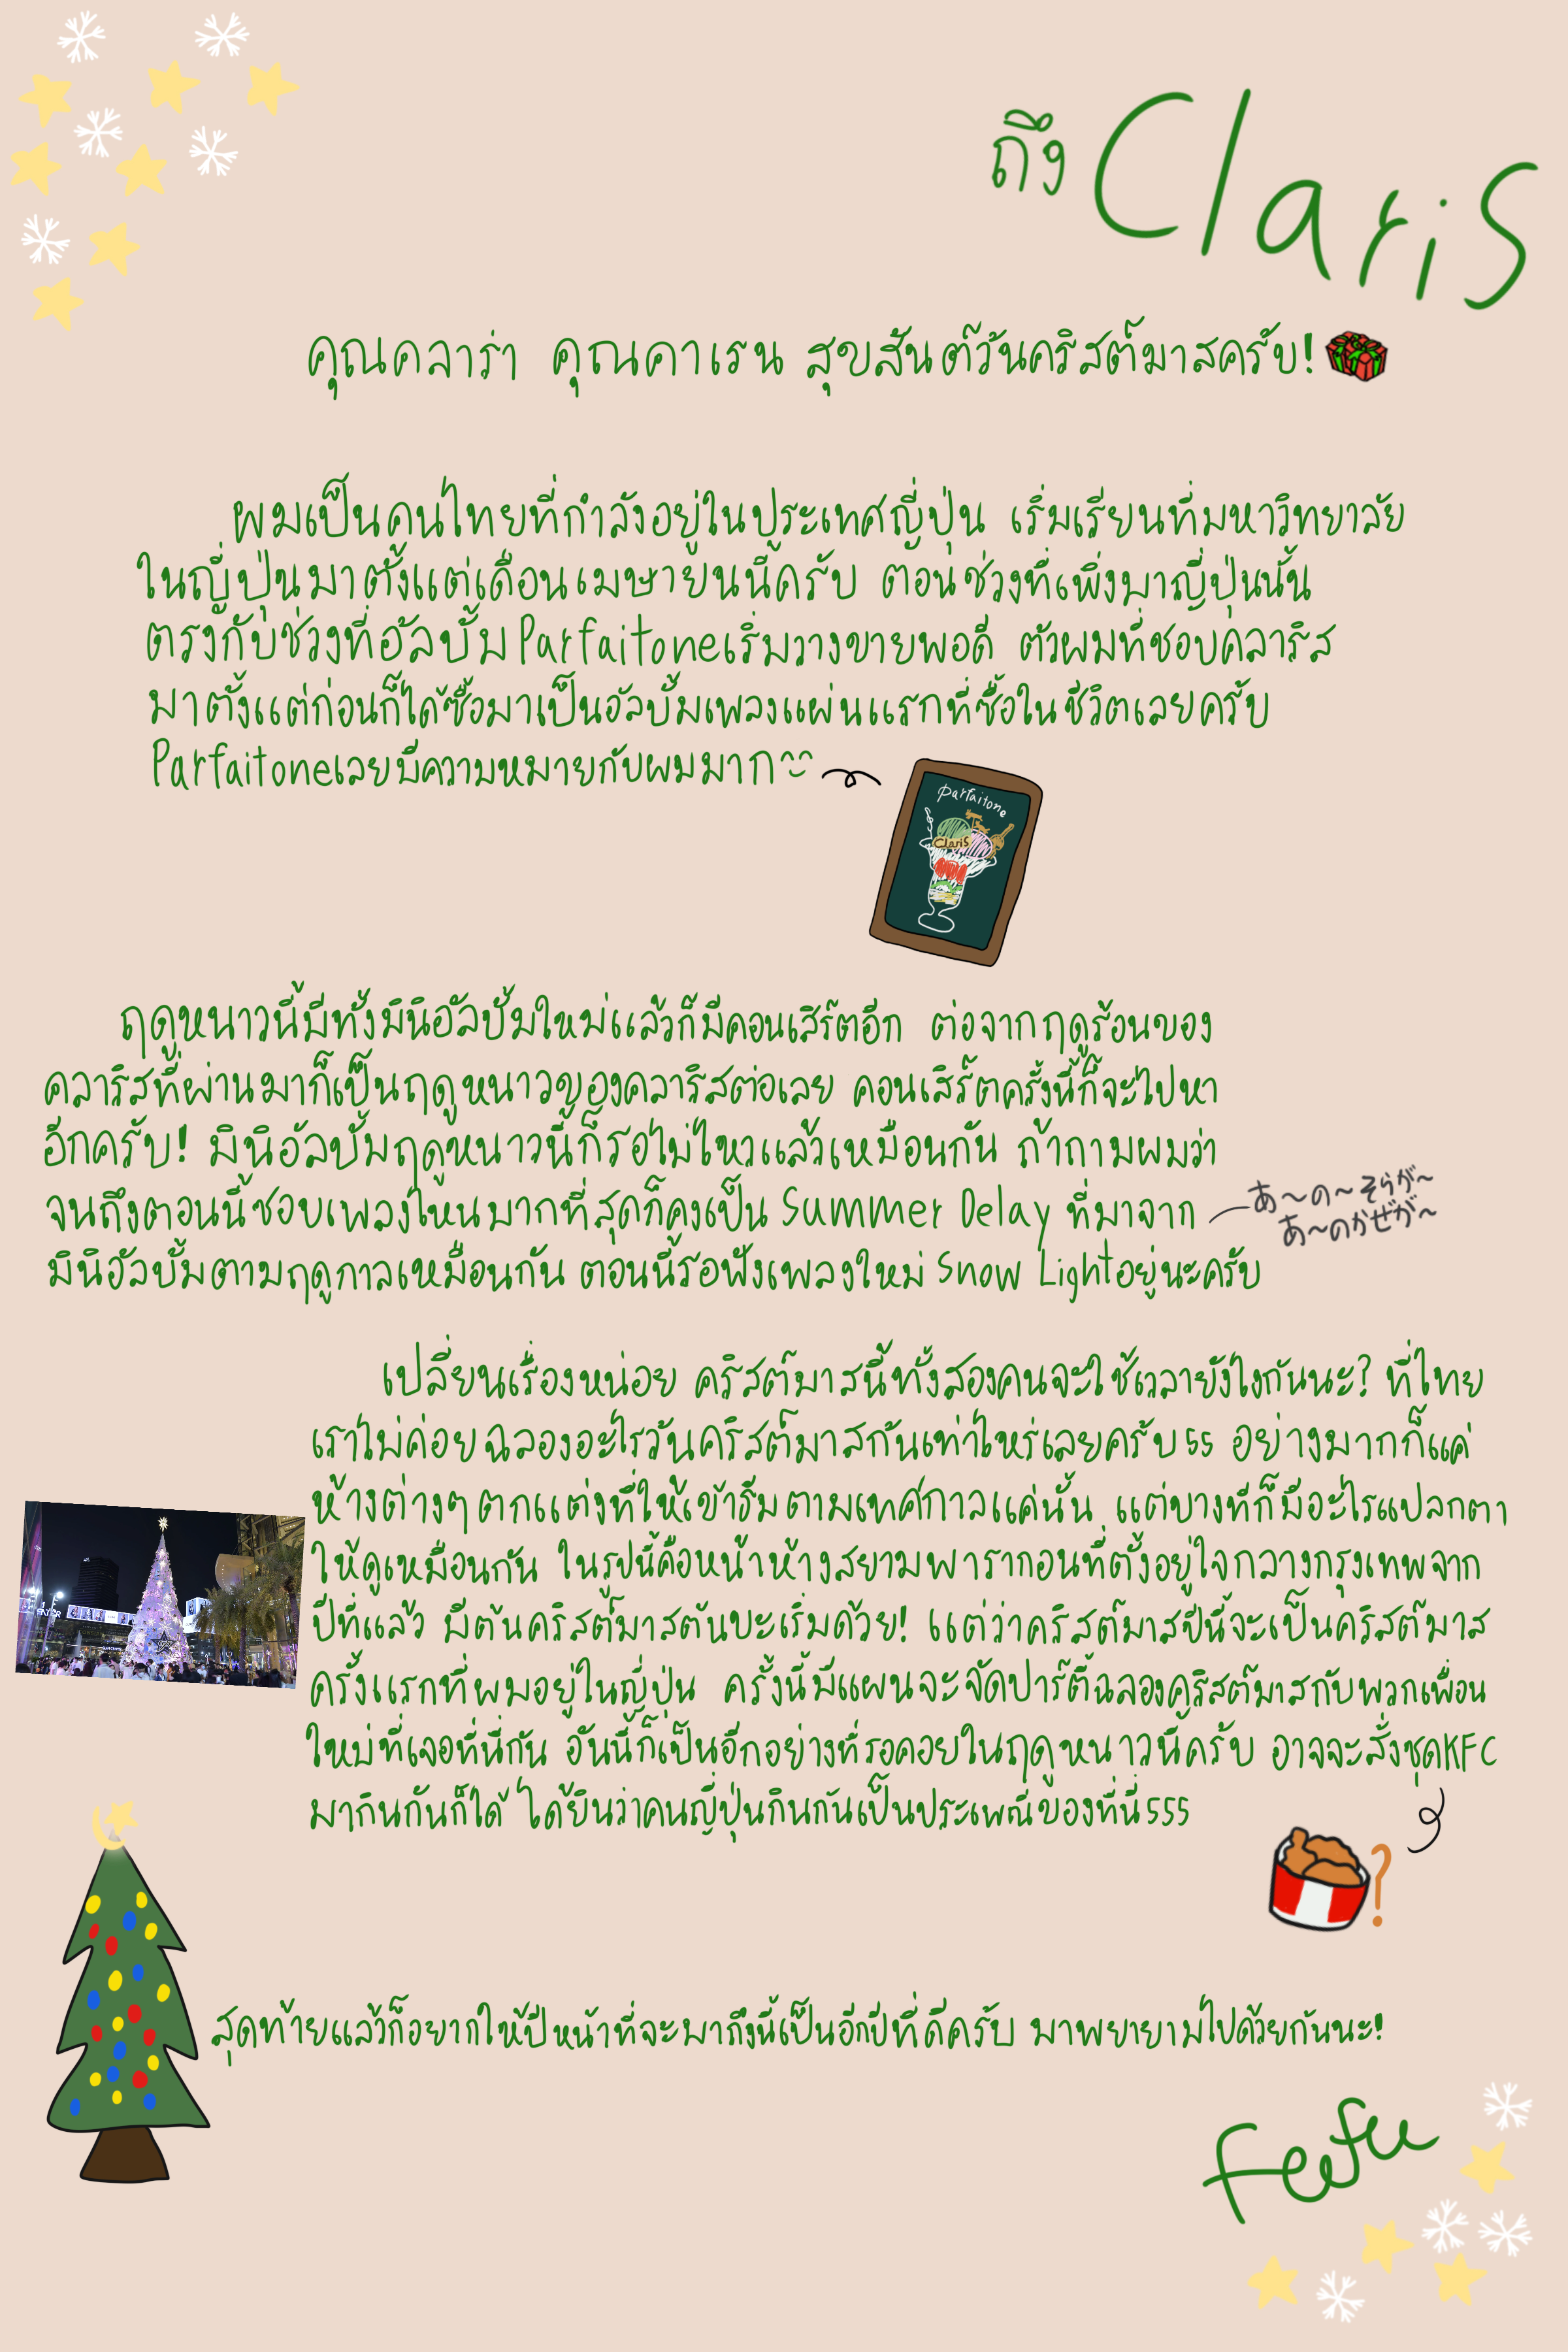 ถึง ClariS
คุณคลาร่า คุณคาเรน สุขสันต์วันคริสต์มาสครับ!
ผมเป็นคนไทยที่กำลังอยู่ในประเทศญี่ปุ่น เริ่มเรียนที่มหาวิทยาลัย
ในญี่ปุ่นมาตั้งแต่เดือนเมษายนนี้ครับ ตอนช่วงที่เพิ่งมาญี่ปุ่นนั้น
ตรงกับช่วงที่อัลบั้มParfaitoneเริ่มวางขายพอดี ตัวผมที่ชอบคลาริส
มาตั้งแต่ก่อนก็ได้ซื้อมาเป็นอัลบั้มเพลงแผ่นแรกที่ซื้อในชีวิตเลยครับ
Parfaitoneเลยมีความหมายกับผมมาก^^
Parfaitone
ClariS
ฤดูหนาวนี้มีทั้งมินิอัลบั้มใหม่แล้วก็มีคอนเสิร์ตอีก ต่อจากฤดูร้อนของ
คลาริสที่ผ่านมาก็เป็นฤดูหนาวของคลาริสต่อเลย คอนเสิร์ตครั้งนี้ก็จะไปหา
อีกครับ! มินิอัลบั้มฤดูหนาวนี้ก็รอไม่ไหวแล้วเหมือนกัน ถ้าถามผมว่า
จนถึงตอนนี้ชอบเพลงไหนมากที่สุดก็คงเป็น Summer Delay ที่มาจาก
あ〜の〜そらが〜
あ〜のかぜが〜
มินิอัลบั้มตามฤดูกาลเหมือนกัน ตอนนี้รอฟังเพลงใหม่ Snow Lightอยู่นะครับ
เปลี่ยนเรื่องหน่อย คริสต์มาสนี้ทั้งสองคนจะใช้เวลายังไงกันนะ? ที่ไทย
เราไม่ค่อยฉลองอะไรวันคริสต์มาสกันเท่าไหร่เลยครับ55 อย่างมากก็แค่
ห้างต่างๆตกแต่งที่ให้เข้าธีมตามเทศกาลแค่นั้น แต่บางทีก็มีอะไรแปลกตา
ให้ดูเหมือนกัน ในรูปนี้คือหน้าห้างสยามพารากอนที่ตั้งอยู่ใจกลางกรุงเทพจาก
ปีที่แล้ว มีต้นคริสต์มาสต้นบะเริ่มด้วย! แต่ว่าคริสต์มาสปีนี้จะเป็นคริสต์มาส
ครั้งแรกที่ผมอยู่ในญี่ปุ่น ครั้งนี้มีแผนจะจัดปาร์ตี้ฉลองคริสต์มาสกับพวกเพื่อน
ใหม่ที่เจอที่นี่กัน อันนี้ก็เป็นอีกอย่างที่รอคอยในฤดูหนาวนี้ครับ อาจจะสั่งชุดKFC
มากินกันก็ได้ ได้ยินว่าคนญี่ปุ่นกินกันเป็นประเพณีของที่นี่555
?
สุดท้ายแล้วก็อยากให้ปีหน้าที่จะมาถึงนี้เป็นอีกปีที่ดีครับ มาพยายามไปด้วยกันนะ!